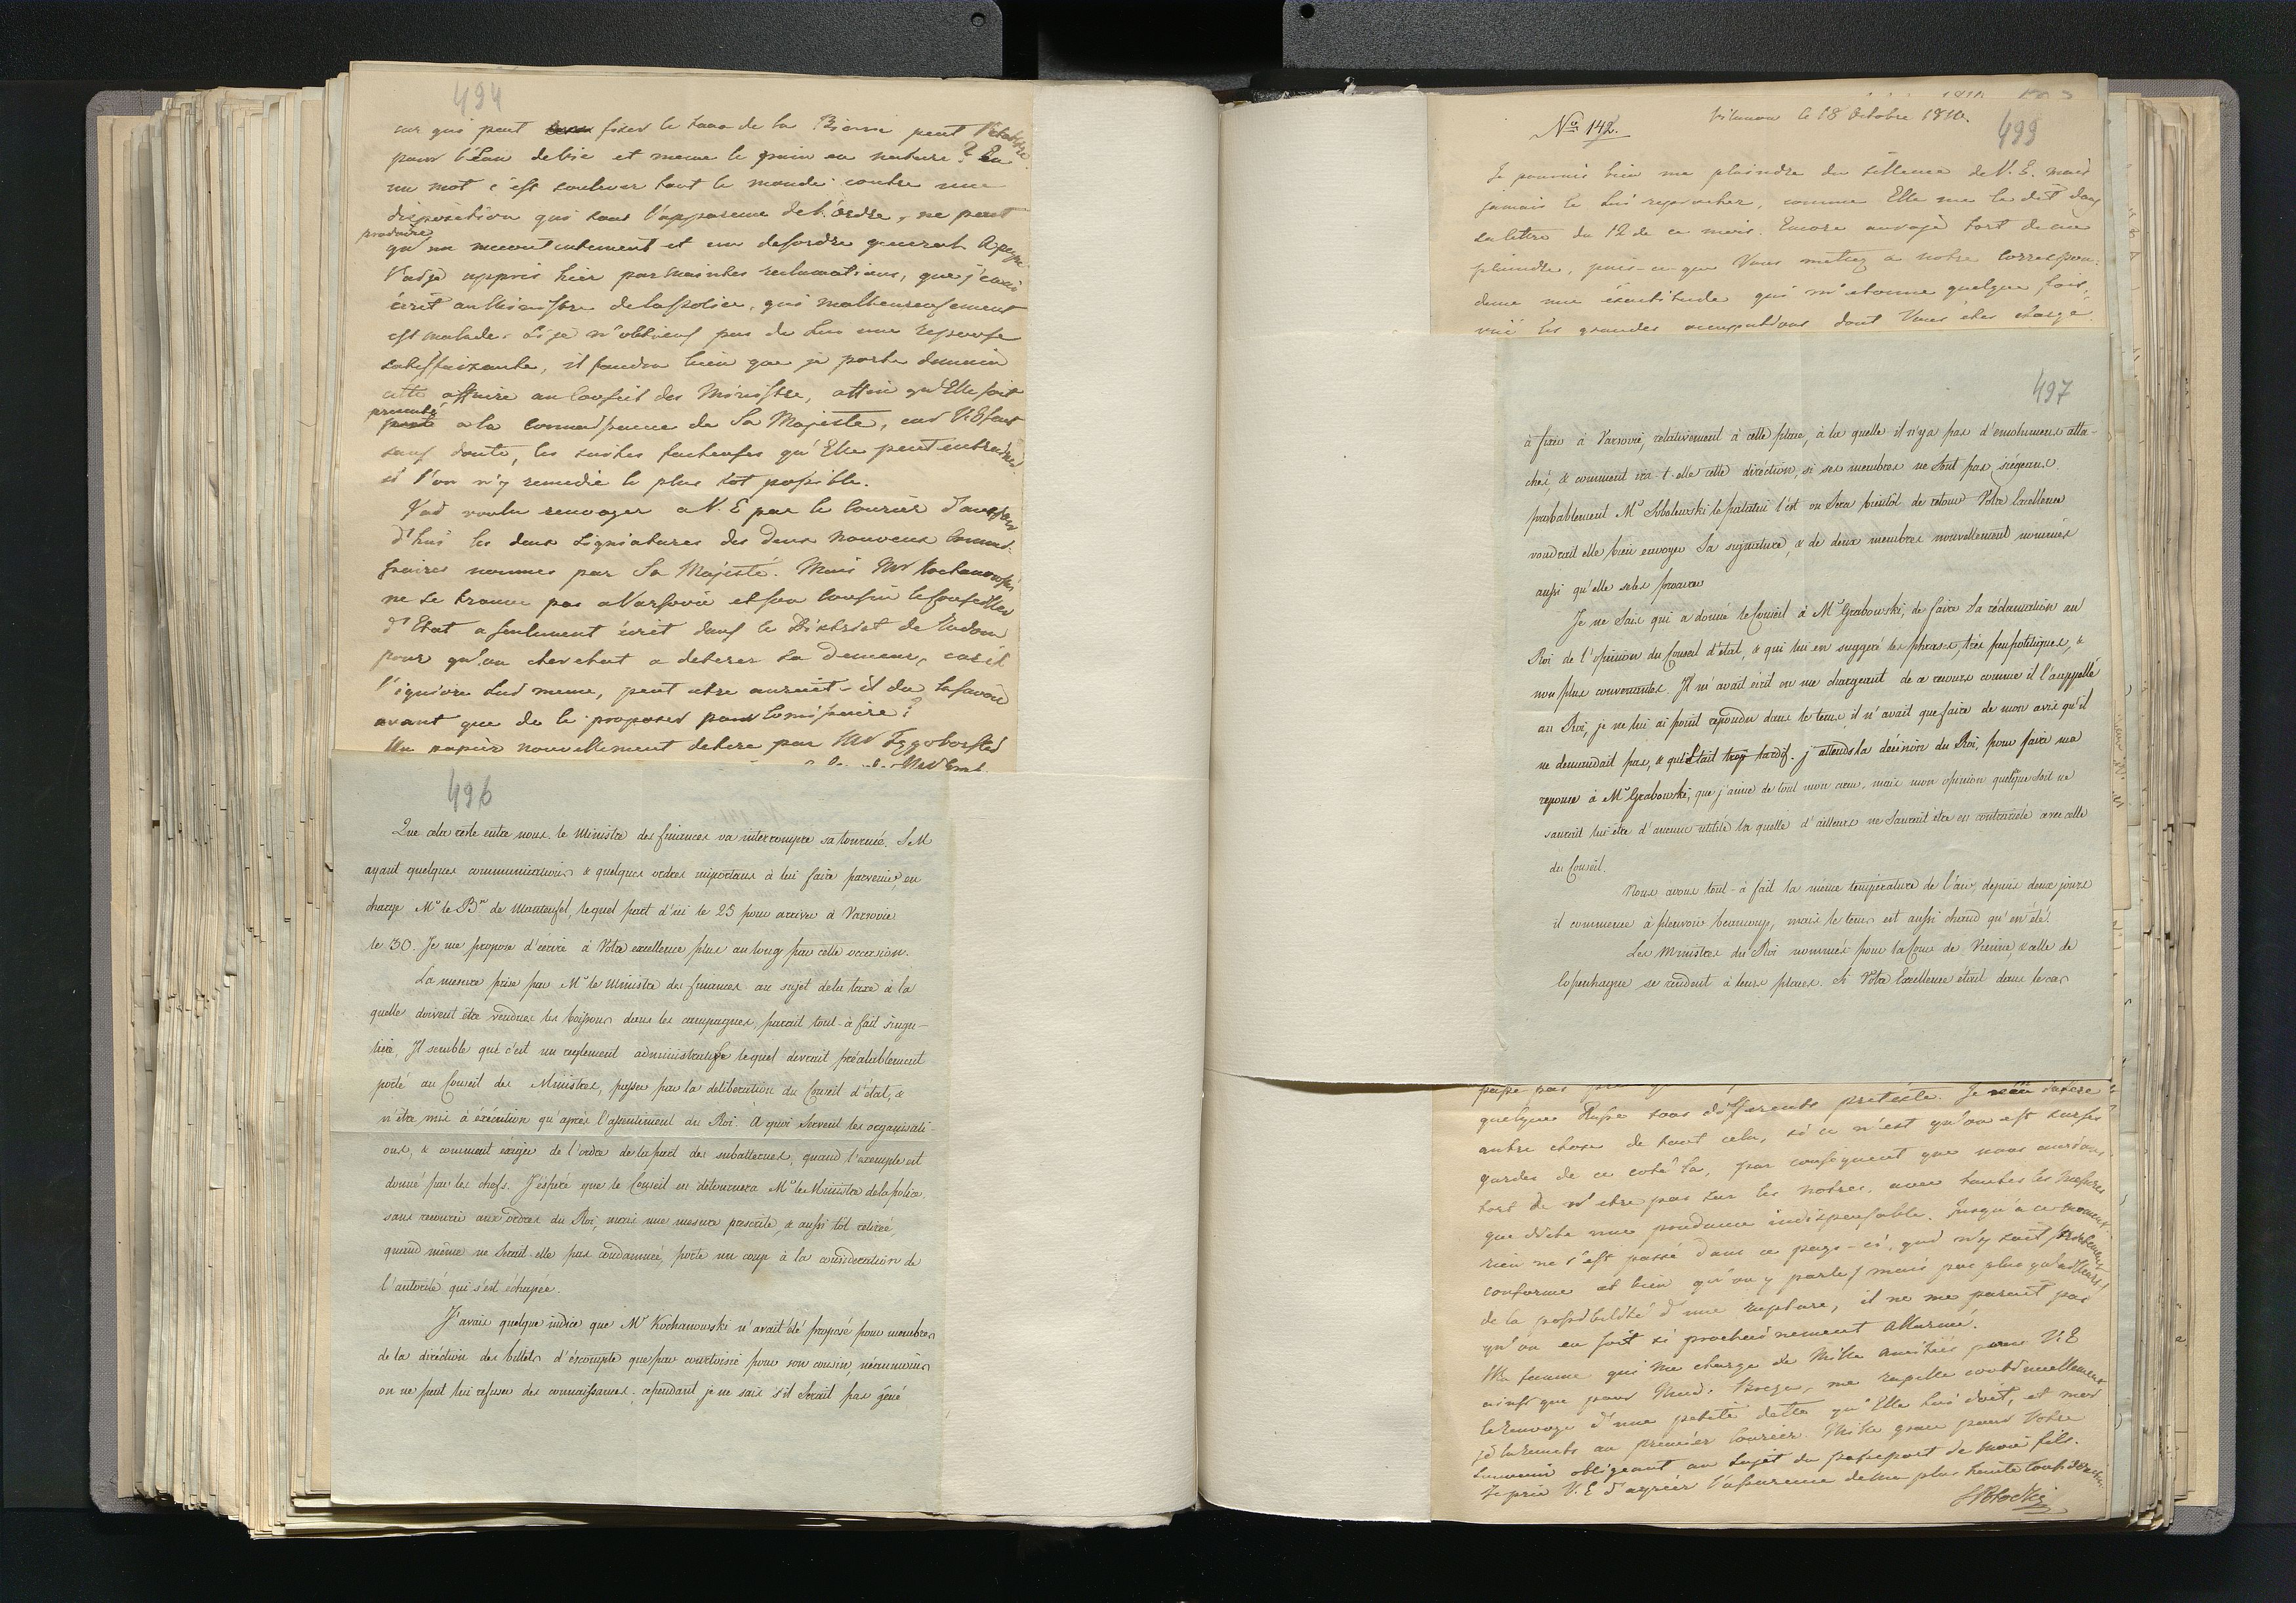 494
car qui peut fixer le taux de la Bierre peut l'etablir
pour l'Eau de Vie et meme le grain en nature? En
un mot c'est soulever tout le monde contre une
disposition qui sous l'apparence de l'ordre, ne peut
produire
qu'un mecontentement et un desordre general. A peine
l'ai-je appris hier par maintes reclamations, que j'en ai
écrit au Ministre de la police, qui malheureusement
est malade. Si je n'obtiens pas de Lui une reponse
satisfaizante, il faudra bien que je porte demain
cette affaire au Conseil des Ministre, affin qu'Elle soit
presentée
a la connaissance de Sa Majesté, car V. E sent
sans doute, les suites facheuses qu'Elle peut entrainer
si l'on n'y remedie le plus tot possible.
J'ai voulu renvoyer a V. E par le Courier d'aujour
d'hui les deux signiatures des deux nouveaux Commis-
saires nommes par Sa Majesté. Mais Mr Kochanowski
ne se trouve pas a Varsovie et son Cousin le Conseiller
d'Etat a seulement écrit dans le District de Radom
pour qu'on cherchat a deterer sa demeure, car il
l'ignore Lui meme, peut etre auroit-il du le savoir
avant que de le proposer pour Comissaire?
Un papier nouvellement deteré par Mr
496
Que cela reste entre nous. le Ministre des finances va interrompre sa tournée. S M
ayant quelques communications & quelques ordres importans à lui faire parvenir, en
charge Mr le Bn de Manteufel, lequel part d'ici le 25 pour arriver à Varsovie
le 30. Je me propose d'écrire à Votre excellence plus au long par cette occasion.
La mesure prise par Mr le Ministre des finances au sujet de la taxe à la
quelle doivent être vendues les boissons dans les campagnes, parait tout-à fait singu-
liere, Il semble que c'est un reglement administratif lequel devrait préalablement
porté au Conseil des Ministres, passer par la deliberation du Conseil d'état, &
n'être mis à éxécution qu'après l'assentiment du Roi. A quoi servent les organisati-
ons, & comment éxiger de l'ordre de la part des subalternes, quand l'exemple est
donné par les chefs. J'éspére que le Conseil en détournera Mr le Ministre de la police
sans recourir aux ordres du Roi, mais une mesure prescrite, & aussi tôt retirée,
quand même ne serait-elle pas condamnée, porte un coup à la consideration de
l'autorité qui s'est échapée.
J'avais quelque indice que Mr Kochanowski n'avait été proposé pour membre
de la diréction des billets d'éscompte que par courtoisie pour son cousin, néanmoins
on ne peut lui refuser des connaissances; cependant je ne sais s'il serait pas gêné
Nro 142.
Vilanow le 18 Octobre 1810.
499
Je pourois bien me plaindre du sillence de V. E. mais
jamais le Lui reprocher, comme Elle me le dit dans
sa lettre du 12 de ce mois. Encore aurois-je tort de me
plaindre, puis-ce-que Vous mettez a notre Correspon-
dence une éxactitude qui m'etonne quelque fois,
vuë les grandes occupations dont Vous étes charge
497
à fixer à Varsovie, relativement à cette place, à la quelle il n'y a pas d'emolumens atta-
chés, & comment ira-t-elle cette diréction, si ses membres ne sont pas siégeans.
probablement Mr Sobolewski le palatin l'est ou sera bientôt de retour. Votre Excellence
voudrait elle bien envoyer Sa signature, & de deux membres nouvellement nommés
aussi qu'elle se les procure
Je ne sais qui a donné le Conseil à Mr Grabowski, de faire Sa réclamation au
Roi de l'opinion du Conseil d'état, & qui lui en suggeré les phrases, très peu politiques, &
non plus convenantes. Il m'avait écrit en me chargeant de ce recours comme il l'auppellé
au Roi, je ne lui ai point repondu dans le tems, il n'avait que faire de mon avis qu'il
ne demandait pas, & qui était trop tardif. j'attends la décision du Roi, pour faire ma
reponse à Mr Grabowski, que j'aime de tout mon cœur, mais mon opinion quelque soit ne
saurait lui être d'aucune utilité la quelle d'ailleurs ne saurait être en contrariété avec celle
du Conseil.
Nous avons tout-à fait la même température de l'air, depuis deux jours
il commence à pleuvoir beaucoup, mais le tems est aussi chaud qu'en été.
Les Ministres du Roi nommés pour la Cour de Vienne, & celle de
Copenhague se rendent à leurs places. Si Votre Excellence était dans le cas
quelque Russe sous differents pretexte. Je
autre chose de tout cela, si ce n'est qu'on est sur ses
gardes de ce coté la, par consequent que nous aurions
tort de n'etre pas sur les notres, avec toutes les mesures
que dicte une prudence indispensable. Jusqu'à ce moment
rien ne s'est passé dans ce pays-ci, qui n'y soit
conforme et bien qu'on y parle, mais pas plus qu'ailleurs,
de la possibilité d'une rupture, il ne me paroit pas
qu'on en soit si prochainement allarmé.
Ma femme qui me charge de Mille Amitiés pour V. E
ainsi que pour Mad. Breza, me rapelle continuellement
le renvoye d'une petite dette qu'Elle lui doit, et moi
je la remets au premier Courier. Mille grace pour Votre
souvenir obligeant au sujet du passeport de mon fils.
Je prie V. E d'agréer l'assurance de ma plus haute Consideration.
SPotocki